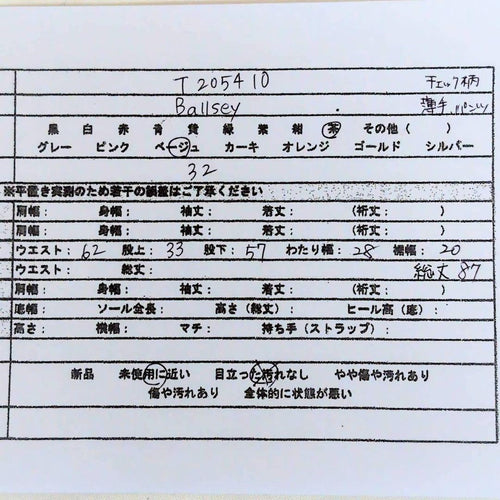 T205410 チェック柄
Ballsey 薄手パンツ
黒 白 赤 青 黄 緑 紫 紺 茶 その他（ ）
グレー ピンク ベージュ カーキ オレンジ ゴールド シルバー
32
※平置き実測のため若干の誤差はご了承ください
肩幅： 身幅： 袖丈： 着丈： （裄丈： ）
肩幅： 身幅： 袖丈： 着丈： （裄丈： ）
ウエスト：62 股上：33 股下：57 わたり幅：28 裾幅：20
ウエスト： 総丈： 総丈 87
肩幅： 身幅： 袖丈： 着丈： （裄丈： ）
底幅： ソール全長： 高さ（総丈）： ヒール高（底）：
高さ： 横幅： マチ： 持ち手（ストラップ）：
新品 未使用に近い 目立った汚れなし やや傷や汚れあり
傷や汚れあり 全体的に状態が悪い